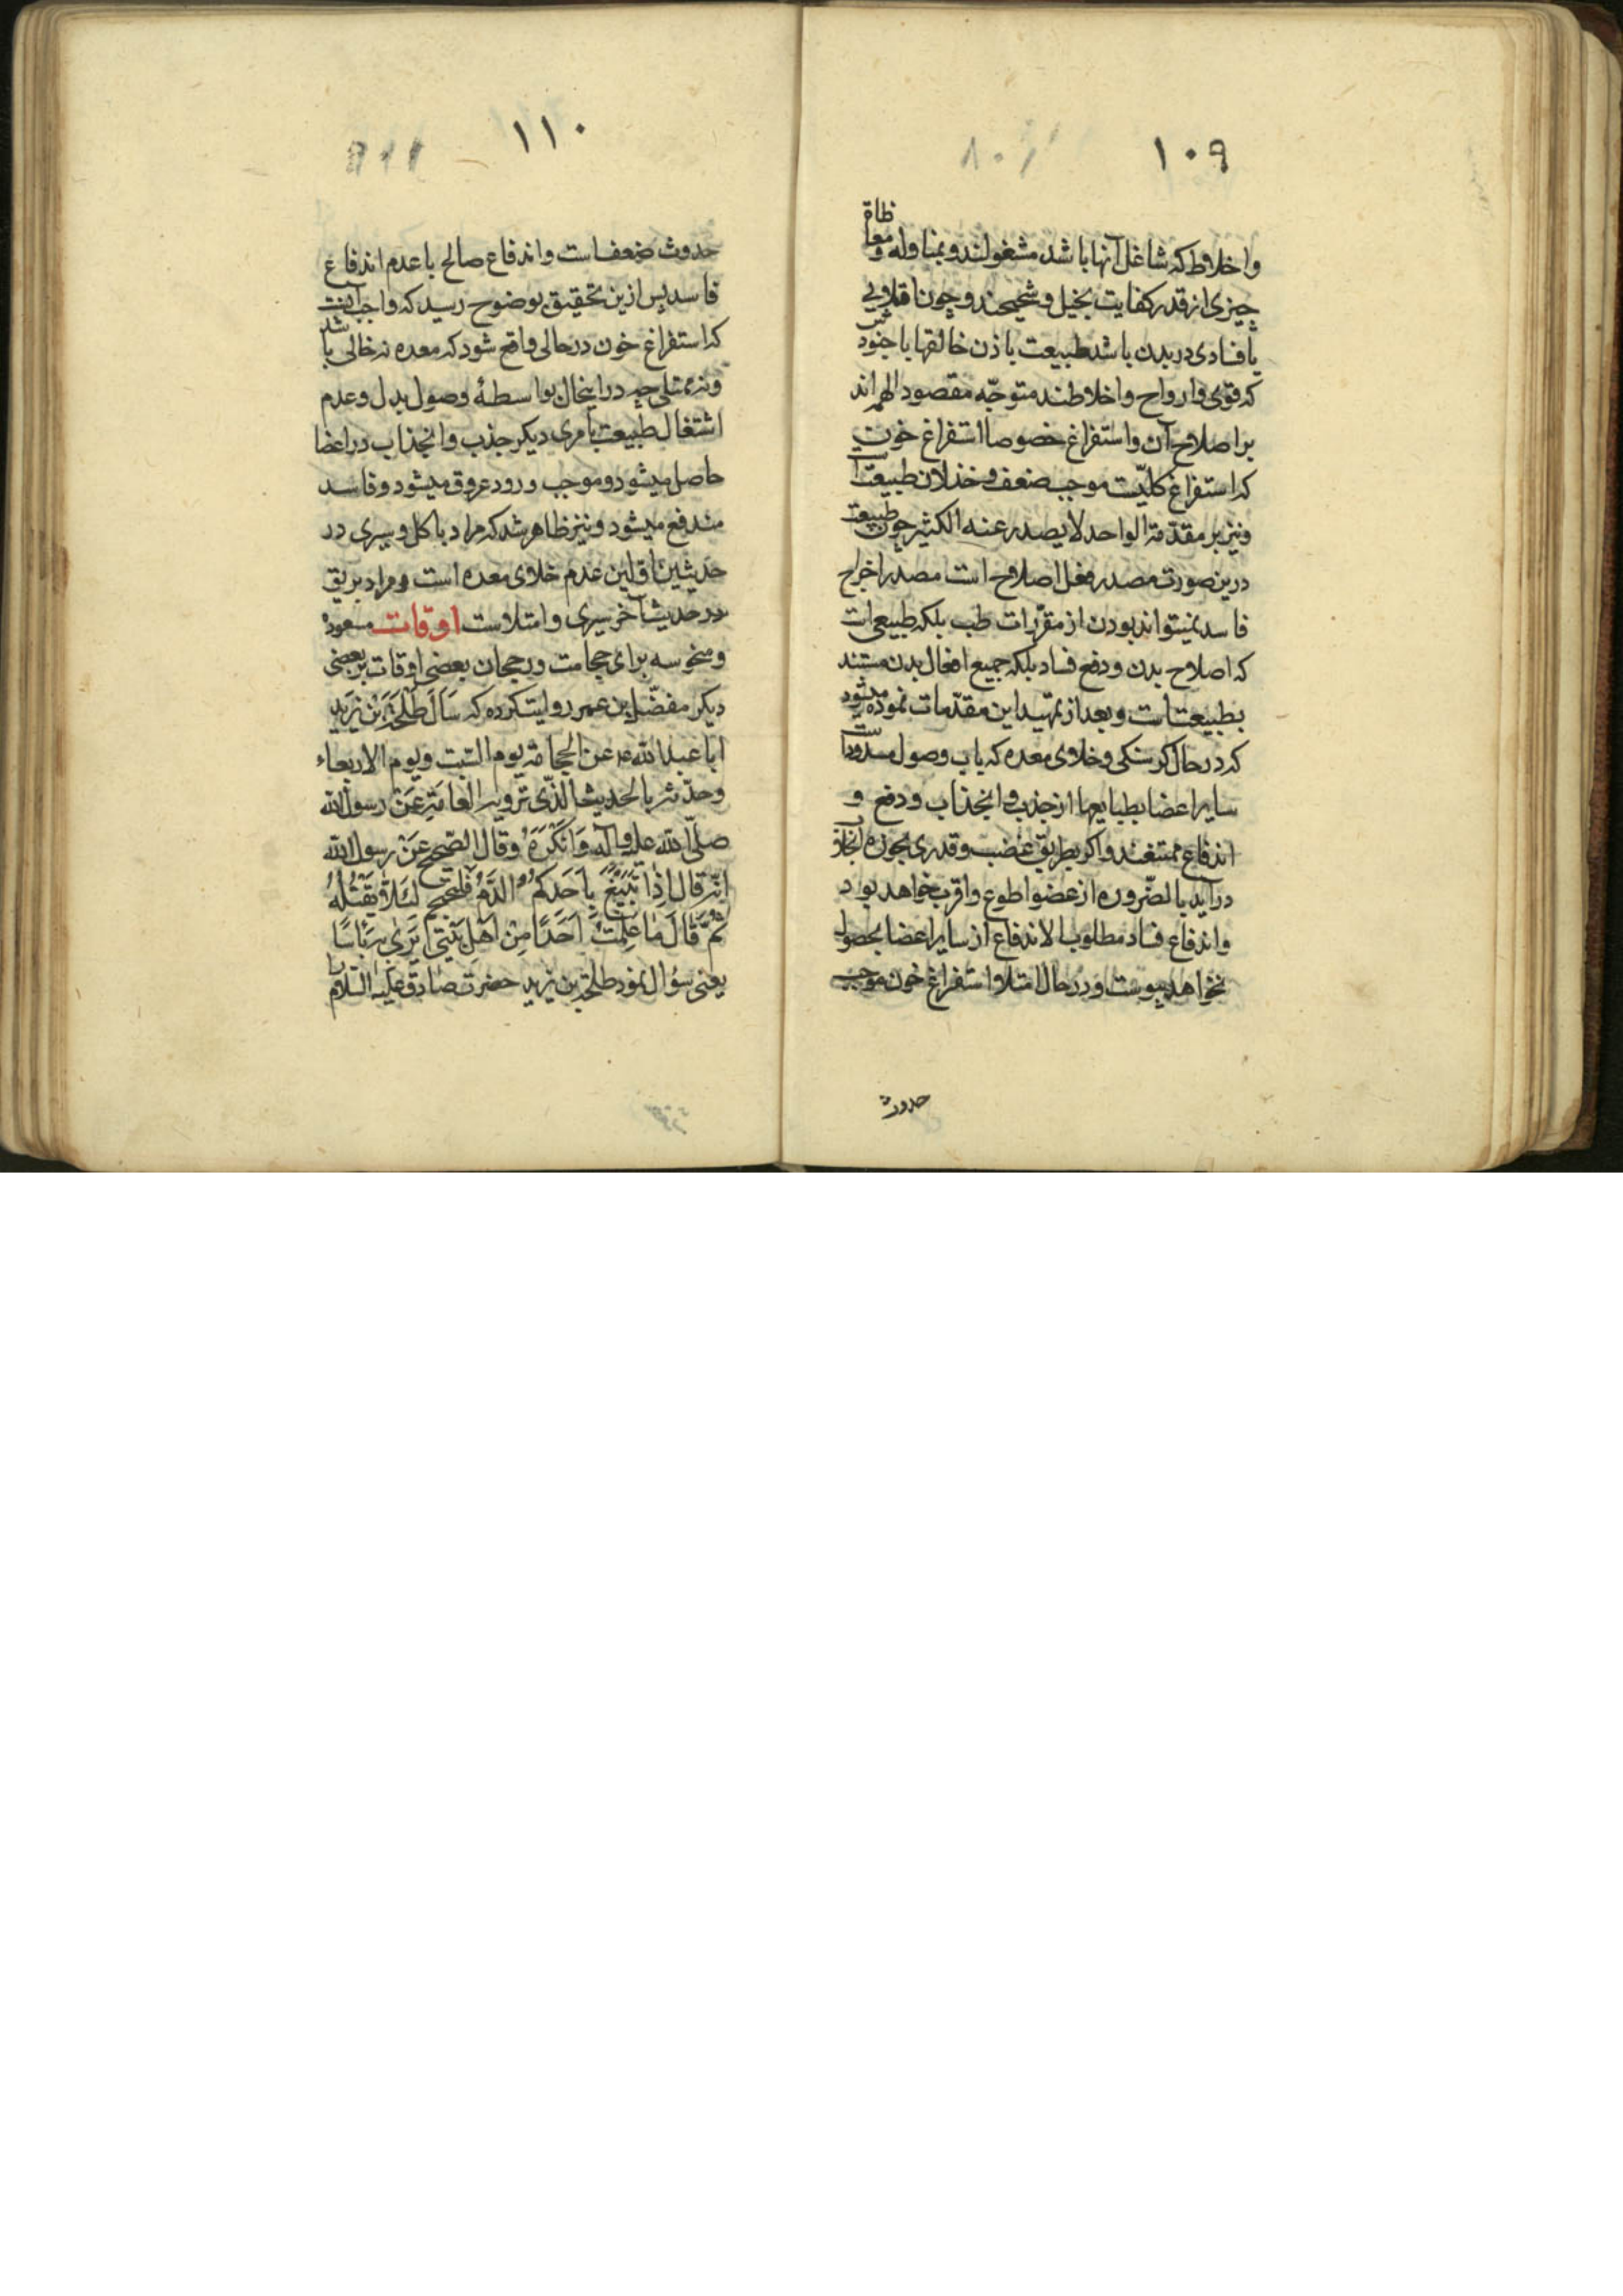 ۱۰۹
واخلاط که شاغل آنها باشد مشغولند و بمناوله و معاظاة
چیزی از قدر کفایت بخیل و شحیحند و چون ناقلاویی
یا فسادی در بدن باشد طبیعت باذن خالقها با جنود
که قوی و ارواح و اخلاطند متوجّه مقصود الهم اند
بر اصلاح آن و استفراغ خصوصا استفراغ خون
که استفراغ کلیّت موجب ضعف و خذلان طبیعت
ونیز بر مقدّمة الواحد لا یصدر عنه الکثیر چون طبیعت
درین صورت مصدر فعل اصلاح است مصدر اخراج
فاسد نمیتواند بودن از مقرّرات طب بلکه طبیعی است
که اصلاح بدن و دفع فساد بلکه جمیع افعال بدن مستند
بطبیعت است و بعد از تمهید این مقدّمات نموده میشود
که در حال گرسنگی و خلاوی معده که باب وصول مسدود است
سایر اعضا بطبایعها از جذب و انجذاب و دفع و
اندفاع ممتنعند و اگر بطریق غضب و قدری بجوره
درآید بالضّروره از عضو اطوع و اقرب خواهد بود
واندفاع فساد مطلوب الاندفاع از سایر اعضا بحصول
نخواهد پیوست و در حال امتلا و استفراغ خون موجب
حدوث
۱۱۰
حدوث ضعف است و اندفاع صالح با عدم اندفاع
فاسد پس ازین تحقیق بوضوح رسید که واجب آنست
که استفراغ خون در حالی واقع شود که معده نه خالی باشد
ونه ممتلی چه در اینحال بواسطهٔ وصول بدل و عدم
اشتغال طبیعت بامری دیگر جذب و انجذاب در اعضا
حاصل میشود و موجب ورود عروق میشود و فاسد
مندفع میشود و نیز ظاهر شد که مراد باکل و سیری در
حدیثین اولین عدم خلاوی معده است و مراد بریق
در حدیث آخر سیری و امتلاست اوقات مسعوده
ومنحوسه برای حجامت و رجحان بعضی اوقات بر بعضی
دیگر مفضّل بن عمر روایت کرده که سَاَلَ طَلْحَةُ بْن زَیْد
ابا عبد الله ع عن الحجامة یوم السّبت ویوم الاربعاء
وحدّثته بالحدیث الّذی ترویه العامّة عَنْ رسول الله
صلّی الله علیه وآله وَاَنْکَرَهُ وقال الصّحیح عَنْ رسول الله
انّه قال اِذا تَبَیَّغَ بِاَحَدِکُمُ الدَّمُ فَلْیَحْتَجِمْ لِئَلَّا یَقْتُلَهُ
ثُمَّ قَالَ مَا عَلِمْتُ اَحَدًا مِنْ اَهْلِ بَیْتِی یَرَی بِهِ بَاْسًا
یعنی سؤال نمود طلحة بن زید حضرت صادق علیه السّلام را